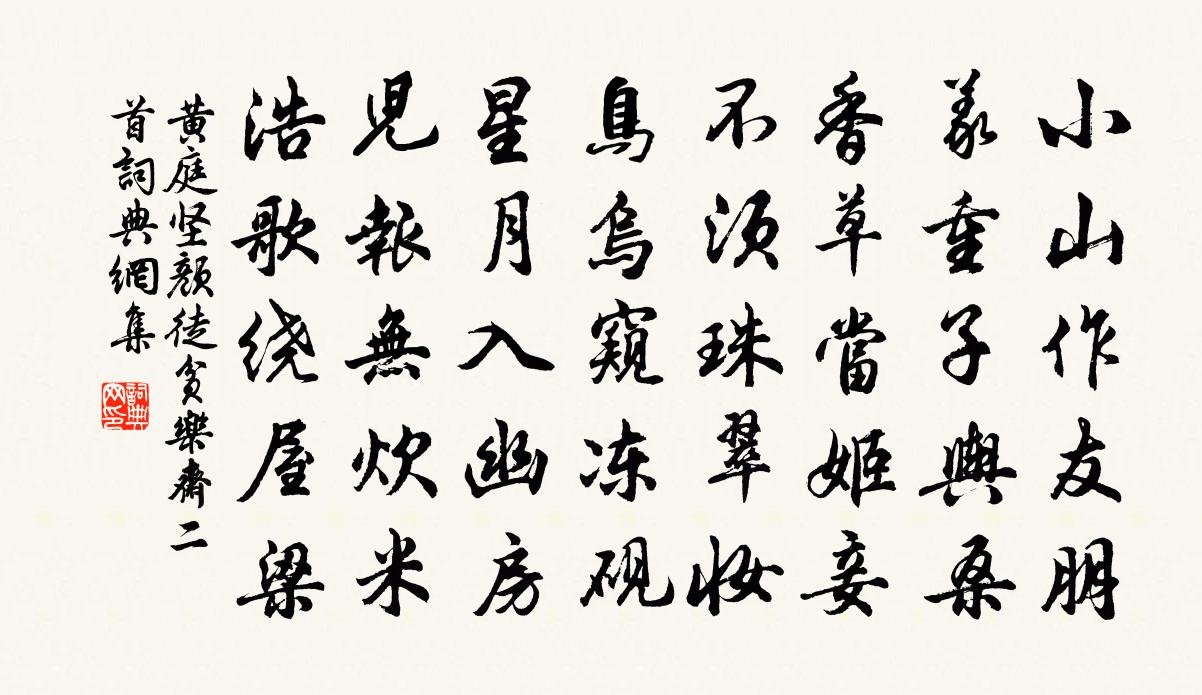 小山作友朋
義重子輿桑
香草當姬妾
不須珠翠妝
鳥烏窺凍硯
星月入幽房
兒報無炊米
浩歌绕屋梁
黄庭坚顏徒貧樂齋二
首詞典網集
詞典
网印